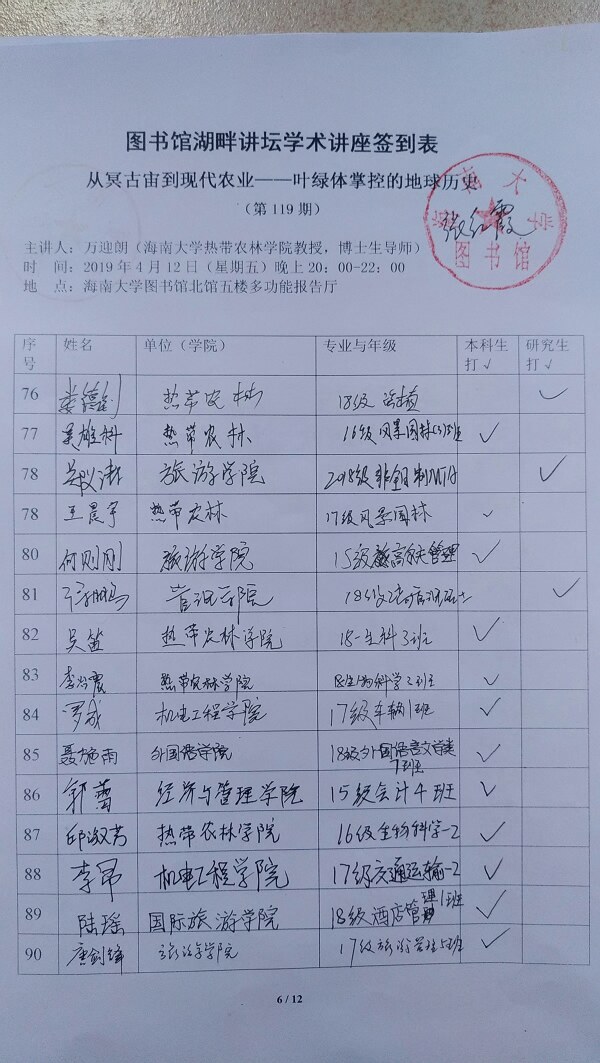 图书馆湖畔讲坛学术讲座签到表
从冥古宙到现代农业——叶绿体掌控的地球历史
（第119期）
张红霞
图书馆
主讲人：万迎朗（海南大学热带农林学院教授，博士生导师）
时　间：2019年4月12日（星期五）晚上20：00-22：00
地　点：海南大学图书馆北馆五楼多功能报告厅
序号 姓名 单位（学院） 专业与年级 本科生打√ 研究生打√
76 热带农林 18级 √
77 吴雄科 热带农林 16级风景园林(3)班 √
78 旅游学院 2018级非全日制MTA √
78 王晨宇 热带农林 17级风景园林 √
80 何则刚 旅游学院 15级 管理 √
81 管理学院 18级 √
82 吴笛 热带农林学院 18-生科3班 √
83 热带农林学院 18生物科学2班 √
84 罗成 机电工程学院 17级车辆1班 √
85 聂施雨 外国语学院 18级外国语言文学类7班 √
86 郭蕾 经济与管理学院 15级会计4班 √
87 邱淑芳 热带农林学院 16级生物科学-2 √
88 李昂 机电工程学院 17级交通运输-2 √
89 陆瑶 国际旅游学院 18级酒店管理1班 √
90 唐剑锋 旅游学院 17级旅游管理 班 √
6 / 12